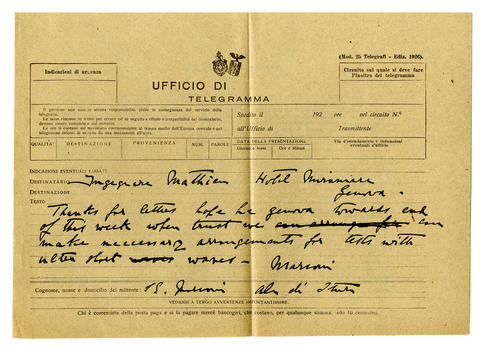 (Mod. 25 Telegrafi - Ediz. 1926).
Indicazioni di urgenza
Circuito sul quale si deve fare
l'inoltro del telegramma
UFFICIO DI
TELEGRAMMA
Il governo non assume alcuna responsabilità civile in conseguenza del servizio della
telegrafia.
Le tasse riscosse in meno per errore od in seguito a rifiuto o irreperibilità del destinatario,
devono essere completate dal mittente.
Le ore si contano sul meridiano corrispondente al tempo medio dell'Europa centrale
Spedito il 192 ore nel circuito N.º
all'Ufficio di Trasmittente
QUALITA' DESTINAZIONE PROVENIENZA NUM. PAROLE DATA DELLA PRESENTAZIONE Via d'istradamento e indicazioni
Giorno e mese Ore e Minuti eventuali d'ufficio
INDICAZIONI EVENTUALI TASSATE
DESTINATARIO Ingegnere Mathieu Hotel Miramare
DESTINAZIONE Genova
TESTO Thanks for letter hope be genova towards end
of this week when trust we can arrange for can
make necessary arrangements for tests with
ultra short waves waves - Marconi
Cognome, nome e domicilio del mittente: G. Marconi
VEDANSI A TERGO AVVERTENZE IMPORTANTISSIME.
Chi è correntista della posta paga e si fa pagare mercè bancogiri, che costano, per qualunque somma, solo 10 centesimi.